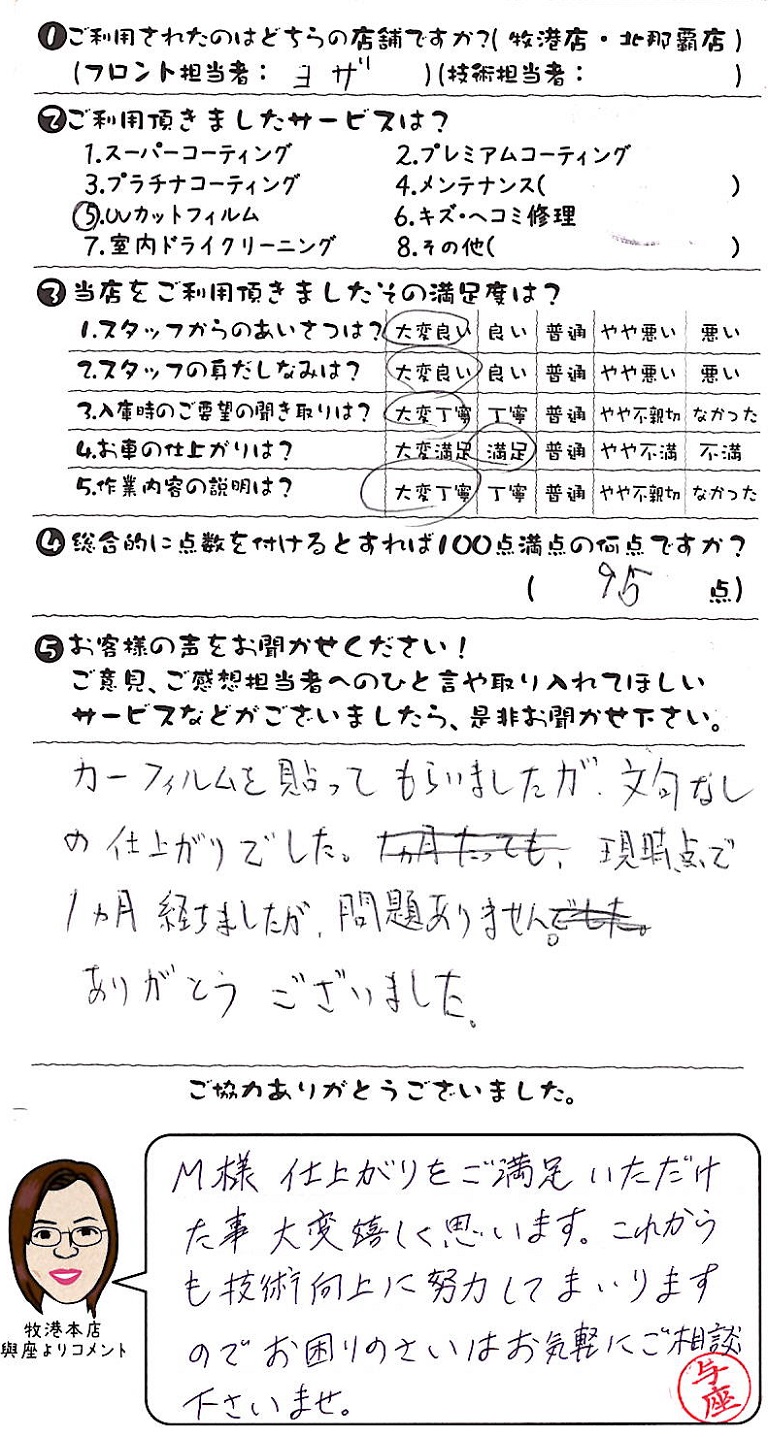 ❶ご利用されたのはどちらの店舗ですか?(牧港店・北那覇店)
(フロント担当者：ヨザ)(技術担当者：)
❷ご利用頂きましたサービスは？
1.スーパーコーティング 2.プレミアムコーティング
3.プラチナコーティング 4.メンテナンス( )
⑤.UVカットフィルム 6.キズ・ヘコミ修理
7.室内ドライクリーニング 8.その他( )
❸当店をご利用頂きましたその満足度は？
1.スタッフからのあいさつは？ 大変良い 良い 普通 やや悪い 悪い
2.スタッフの身だしなみは？ 大変良い 良い 普通 やや悪い 悪い
3.入庫時のご要望の聞き取りは？ 大変丁寧 丁寧 普通 やや不親切 なかった
4.お車の仕上がりは？ 大変満足 満足 普通 やや不満 不満
5.作業内容の説明は？ 大変丁寧 丁寧 普通 やや不親切 なかった
❹総合的に点数を付けるとすれば100点満点の何点ですか？
(95点)
❺お客様の声をお聞かせください！
ご意見、ご感想担当者へのひと言や取り入れてほしい
サービスなどがございましたら、是非お聞かせ下さい。
カーフィルムを貼ってもらいましたが、文句なし
の仕上がりでした。1ヵ月たっても、現時点で
1ヵ月経ちましたが、問題ありません。でした。
ありがとうございました。
ご協力ありがとうございました。
M様 仕上がりをご満足いただけ
た事 大変嬉しく思います。これから
も技術向上に努力してまいります
のでお困りのさいはお気軽にご相談
下さいませ。
牧港本店
與座よりコメント
与座